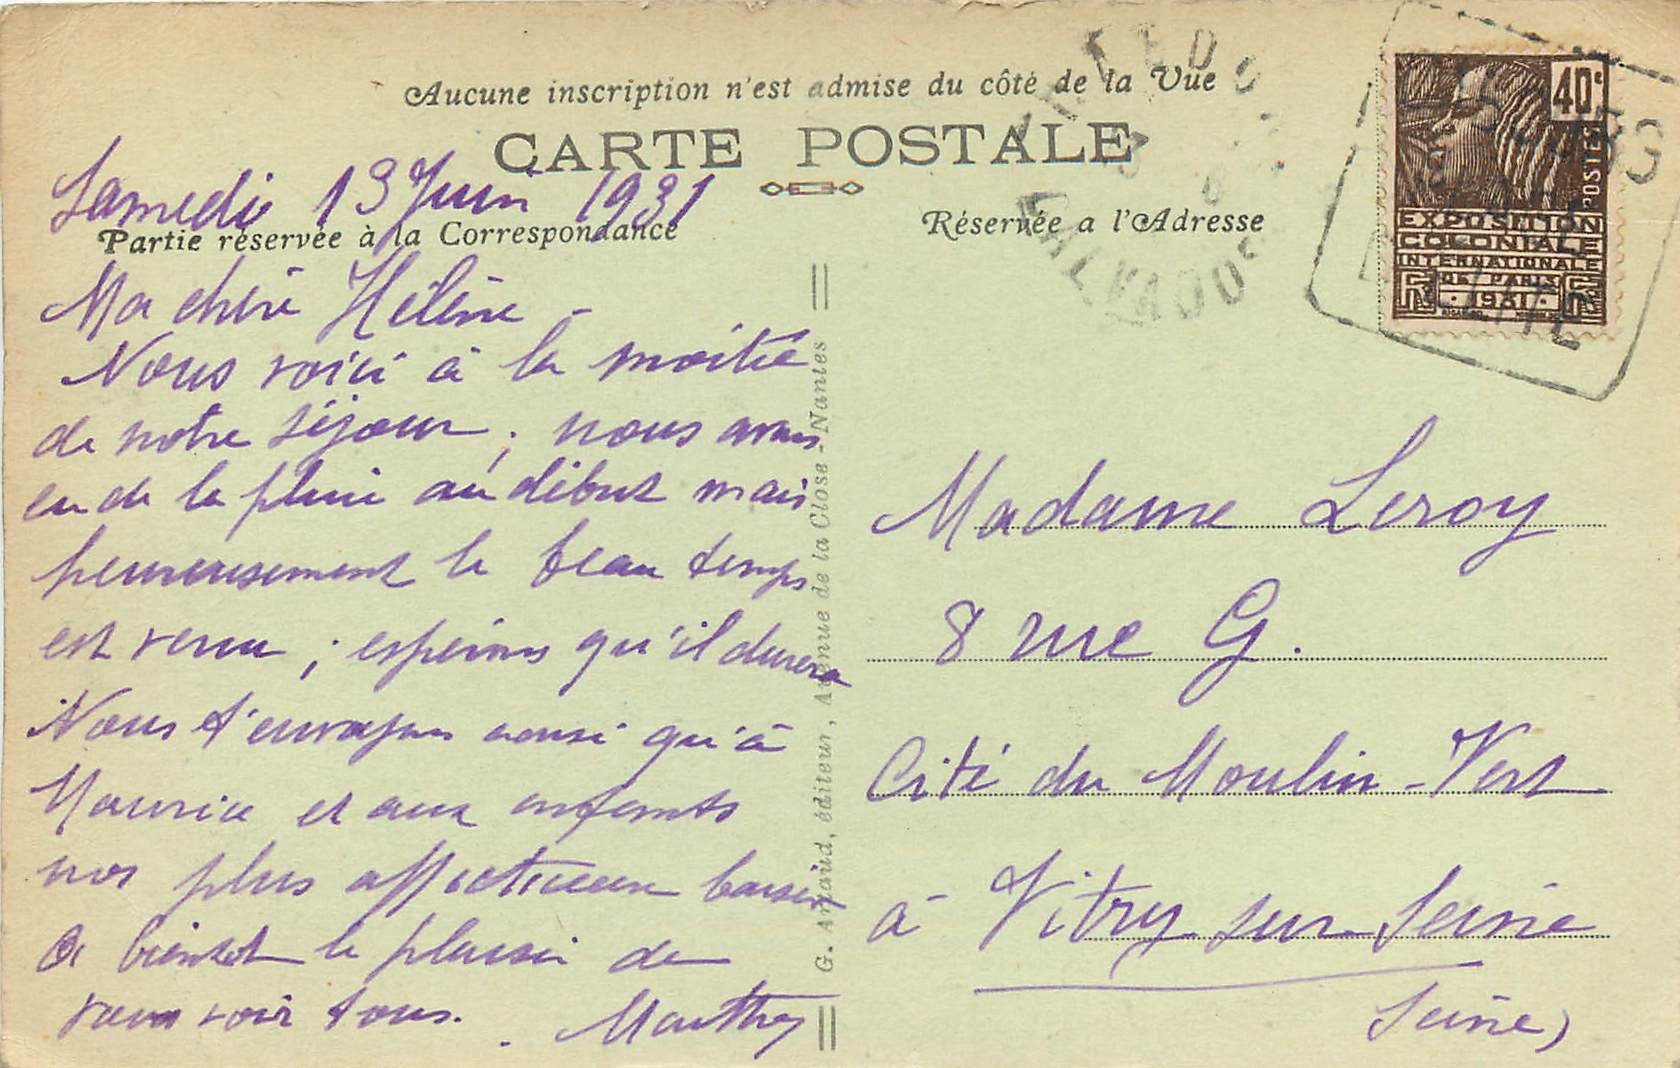 Aucune inscription n'est admise du côté de la Vue
CARTE POSTALE
Samedi 13 Juin 1931
Partie réservée à la Correspondance
Ma chère Hélène -
Nous voici à la moitié
de notre séjour ; nous avons
eu de la pluie au début mais
heureusement le beau temps
est venu ; espérons qu'il durera
Nous t'envoyons ainsi qu'à
Maurice et aux enfants
nos plus affectueux baisers
A bientôt le plaisir de
vous voir tous.
Marthe
G. Artaud, éditeur, Avenue de la Close - Nantes
Réservée a l'Adresse
CALVADOS
40c
POSTES
EXPOSITION
COLONIALE
INTERNATIONALE
DE PARIS
1931
Madame Leroy
8 rue G.
Cité du Moulin-Vert
à Vitry sur Seine
Seine)